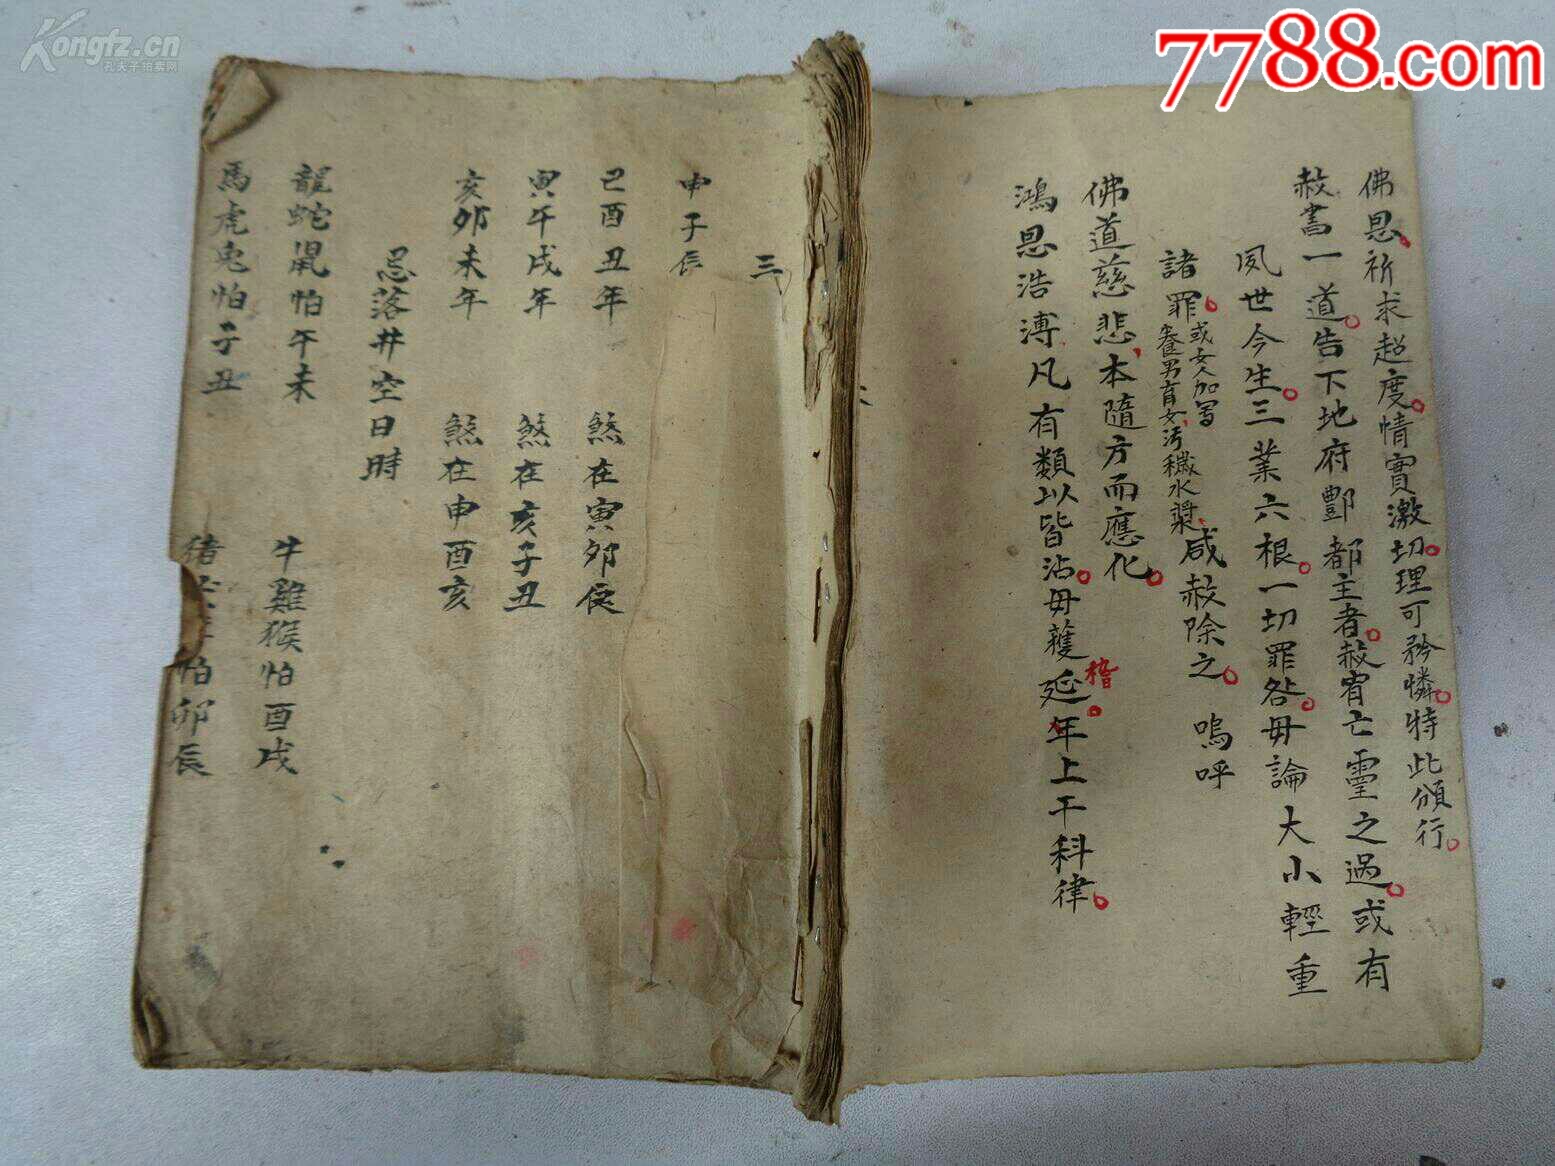 Kongfz.cn
孔夫子拍卖网
7788.com
佛恩祈求超度情實激切理可矜憐特此頒行
赦書一道告下地府酆都主者赦宥亡靈之過或有
夙世今生三業六根一切罪咎毋論大小輕重
諸罪或女人加写養男育女污穢水漿咸赦除之 嗚呼
佛道慈悲本隨方而應化
鴻恩浩溥凡有類以皆沾毋蓰延年上干科律
稽
三
申子辰
巳酉丑年 煞在寅夘辰
寅午戌年 煞在亥子丑
亥夘未年 煞在申酉亥
忌落井空日時
龍蛇鼠怕午未 牛雞猴怕酉戌
馬虎兔怕子丑 猪 怕卯辰